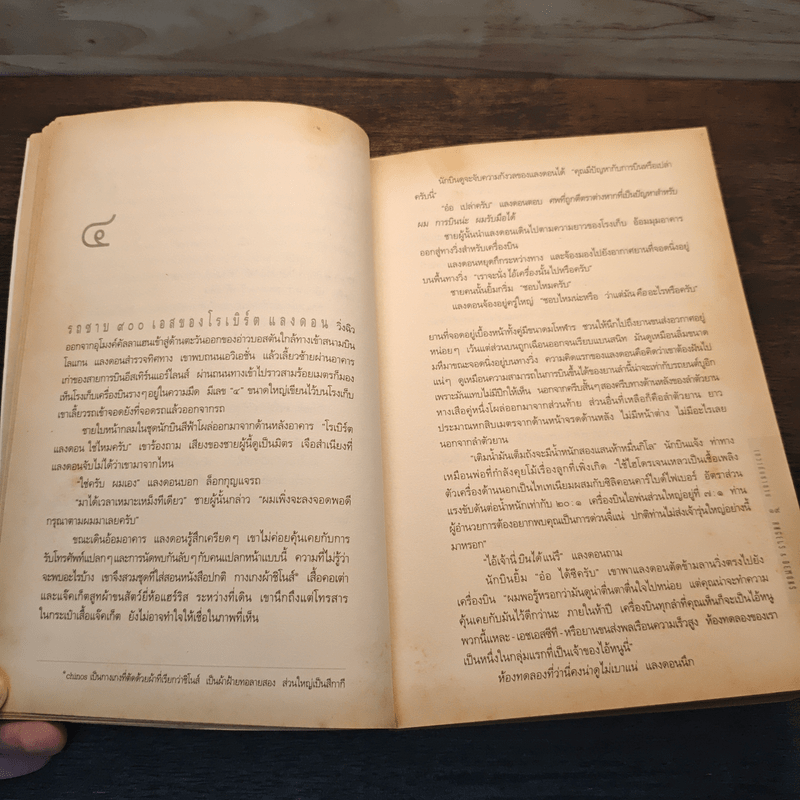 ๔
รถซาบ ๙๐๐ เอสของโรเบิร์ต แลงดอน วิ่งฉิว
ออกจากอุโมงค์คัลลาแฮนเข้าสู่ด้านตะวันออกของอ่าวบอสตันใกล้ทางเข้าสนามบิน
โลแกน แลงดอนสำรวจทิศทาง เขาพบถนนเอวิเอชั่น แล้วเลี้ยวซ้ายผ่านอาคาร
เก่าของสายการบินอีสเทิร์นแอร์ไลนส์ ผ่านถนนทางเข้าไปราวสามร้อยเมตรก็มอง
เห็นโรงเก็บเครื่องบินรางๆ อยู่ในความมืด มีเลข "๔" ขนาดใหญ่เขียนไว้บนโรงเก็บ
เขาเลี้ยวรถเข้าจอดยังที่จอดรถแล้วออกจากรถ
ชายใบหน้ากลมในชุดนักบินสีฟ้าโผล่ออกมาจากด้านหลังอาคาร "โรเบิร์ต
แลงดอน ใช่ไหมครับ" เขาร้องถาม เสียงของชายผู้นี้ดูเป็นมิตร เจือสำเนียงที่
แลงดอนจับไม่ได้ว่าเขามาจากไหน
"ใช่ครับ ผมเอง" แลงดอนบอก ล็อกกุญแจรถ
"มาได้เวลาเหมาะเหม็งทีเดียว" ชายผู้นั้นกล่าว "ผมเพิ่งจะลงจอดพอดี
กรุณาตามผมมาเลยครับ"
ขณะเดินอ้อมอาคาร แลงดอนรู้สึกเครียดๆ เขาไม่ค่อยคุ้นเคยกับการ
รับโทรศัพท์แปลกๆ และการนัดพบกันลับๆ กับคนแปลกหน้าแบบนี้ ความที่ไม่รู้ว่า
จะพบอะไรบ้าง เขาจึงสวมชุดที่ใส่สอนหนังสือปกติ กางเกงผ้าชิโนส์* เสื้อคอเต่า
และแจ็คเก็ตสูทผ้าขนสัตว์ยี่ห้อแฮร์ริส ระหว่างที่เดิน เขานึกถึงแต่โทรสาร
ในกระเป๋าเสื้อแจ็คเก็ต ยังไม่อาจทำใจให้เชื่อในภาพที่เห็น
* chinos เป็นกางเกงที่ตัดด้วยผ้าที่เรียกว่าชิโนส์ เป็นผ้าฝ้ายทอลายสอง ส่วนใหญ่เป็นสีกากี
นักบินดูจะจับความกังวลของแลงดอนได้ "คุณมีปัญหากับการบินหรือเปล่า
ครับนี่"
"อ๋อ เปล่าครับ" แลงดอนตอบ ศพที่ถูกตีตราต่างหากที่เป็นปัญหาสำหรับ
ผม การบินน่ะ ผมรับมือได้
ชายผู้นั้นนำแลงดอนเดินไปตามความยาวของโรงเก็บ อ้อมมุมอาคาร
ออกสู่ทางวิ่งสำหรับเครื่องบิน
แลงดอนหยุดกึกระหว่างทาง และจ้องมองไปยังอากาศยานที่จอดนิ่งอยู่
บนพื้นทางวิ่ง "เราจะนั่งไอ้เครื่องนั้นไปหรือครับ"
ชายคนนั้นยิ้มกริ่ม "ชอบไหมครับ"
แลงดอนจ้องอยู่ครู่ใหญ่ "ชอบไหมน่ะหรือ ว่าแต่มัน คือ อะไรหรือครับ"
ยานที่จอดอยู่เบื้องหน้าทั้งคู่มีขนาดมโหฬาร ชวนให้นึกไปถึงยานขนส่งอวกาศอยู่
หน่อยๆ เว้นแต่ส่วนบนถูกเฉือนออกจนเรียบแบนสนิท มันดูเหมือนลิ่มขนาด
มหึมาขณะจอดนิ่งอยู่บนทางวิ่ง ความคิดแรกของแลงดอนคือคิดว่าเขาต้องฝันไป
แน่ๆ ดูเหมือนความสามารถในการบินขึ้นได้ของยานลำนี้น่าจะเท่ากับรถยนต์บูอิก
เพราะมันแทบไม่มีปีกให้เห็น นอกจากครีบสั้นๆ สองครีบทางด้านหลังของลำตัวยาน
หางเสือคู่หนึ่งโผล่ออกมาจากส่วนท้าย ส่วนอื่นที่เหลือก็คือลำตัวยาน ยาว
ประมาณหกสิบเมตรจากด้านหน้าจรดด้านหลัง ไม่มีหน้าต่าง ไม่มีอะไรเลย
นอกจากลำตัวยาน
"เติมน้ำมันเต็มถังจะมีน้ำหนักสองแสนห้าหมื่นกิโล" นักบินแจ้ง ท่าทาง
เหมือนพ่อที่กำลังคุยโม้เรื่องลูกที่เพิ่งเกิด "ใช้ไฮโดรเจนเหลวเป็นเชื้อเพลิง
ตัวเครื่องด้านนอกเป็นไทเทเนียมผสมกับซิลิคอนคาร์ไบด์ไฟเบอร์ อัตราส่วน
แรงขับดันต่อน้ำหนักเท่ากับ ๒๐:๑ เครื่องบินไอพ่นส่วนใหญ่อยู่ที่ ๗:๑ ท่าน
ผู้อำนวยการต้องอยากพบคุณเป็นการด่วนจี๋แน่ ปกติท่านไม่ส่งเจ้ารุ่นใหญ่อย่างนี้
มาหรอก"
"ไอ้เจ้านี่ บินได้ แน่รึ" แลงดอนถาม
นักบินยิ้ม "อ๋อ ได้ซีครับ" เขาพาแลงดอนตัดข้ามลานวิ่งตรงไปยัง
เครื่องบิน "ผมพอรู้หรอกว่ามันดูน่าตื่นตาตื่นใจไปหน่อย แต่คุณน่าจะทำความ
คุ้นเคยกับมันไว้ดีกว่านะ ภายในห้าปี เครื่องบินทุกลำที่คุณเห็นก็จะเป็นไอ้หนู
พวกนี้แหละ - เอชเอสซีที - หรือยานขนส่งพลเรือนความเร็วสูง ห้องทดลองของเรา
เป็นหนึ่งในกลุ่มแรกที่เป็นเจ้าของไอ้หนูนี่"
ห้องทดลองที่ว่านี่คงน่าดูไม่เบาแน่ แลงดอนนึก
ANGELS & DEMONS